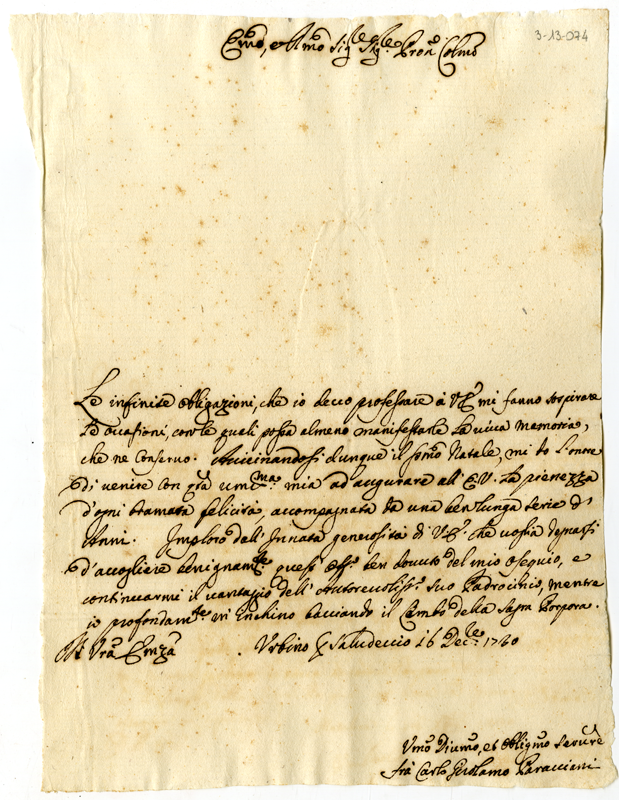 3-13-074
Em̃o, e Rm̃o Sig.re Sig.re Pron̄ Colm̃o
Le infinite obligazioni, che io devo professare à V.E. mi fanno sospirare
le occasioni, con le quali possa almeno manifestarle la viva memoria,
che ne conservo. Avicinandosi dunque il Smõ Natale, mi dò l'onore
di venire con q̃ta um.ma mia ad augurare all'E.V. la pienezza
d'ogni bramata felicità, accompagnata da una ben lunga serie d'
Anni. Imploro dall'Innata generosità di V.E. che voglia degnarsi
d'accogliere benignam.te questi Off. ben dovuto del mio ossequio, e
continuarmi il vantagio dell'Autorevoliss.o suo Padrocinio, mentre
io profondam.te m'inchino bacciando il Lembo della Sagra Porpora.
Di Vrã Emzã
Urbino Saludeccio 16 Dec.re 1740
Vmo Divmo, et Obligmo Servre
frà Carlo Girolamo Paracciani